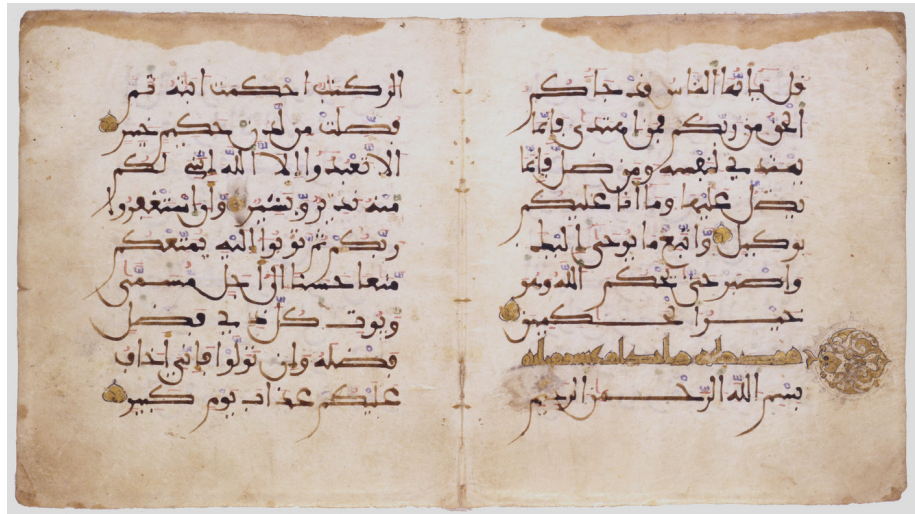 قل يايها الناس قد جاكم
الحق من ربكم فمن اهتدى فإنما
يهتدي لنفسه ومن ضل فإنما
يضل عليها وما أنا عليكم
بوكيل واتبع ما يوحى إليك
واصبر حتى يحكم الله وهو
خير الحكمين
بسم الله الرحمن الرحيم
الر كتب احكمت ايته ثم
فصلت من لدن حكيم خبير
الا تعبدوا إلا الله إنني لكم
منه نذير وبشير وأن استغفروا
ربكم ثم توبوا إليه يمتعكم
متعا حسنا إلى أجل مسمى
ويوت كل ذي فضل
فضله وإن تولوا فإني أخاف
عليكم عذاب يوم كبير